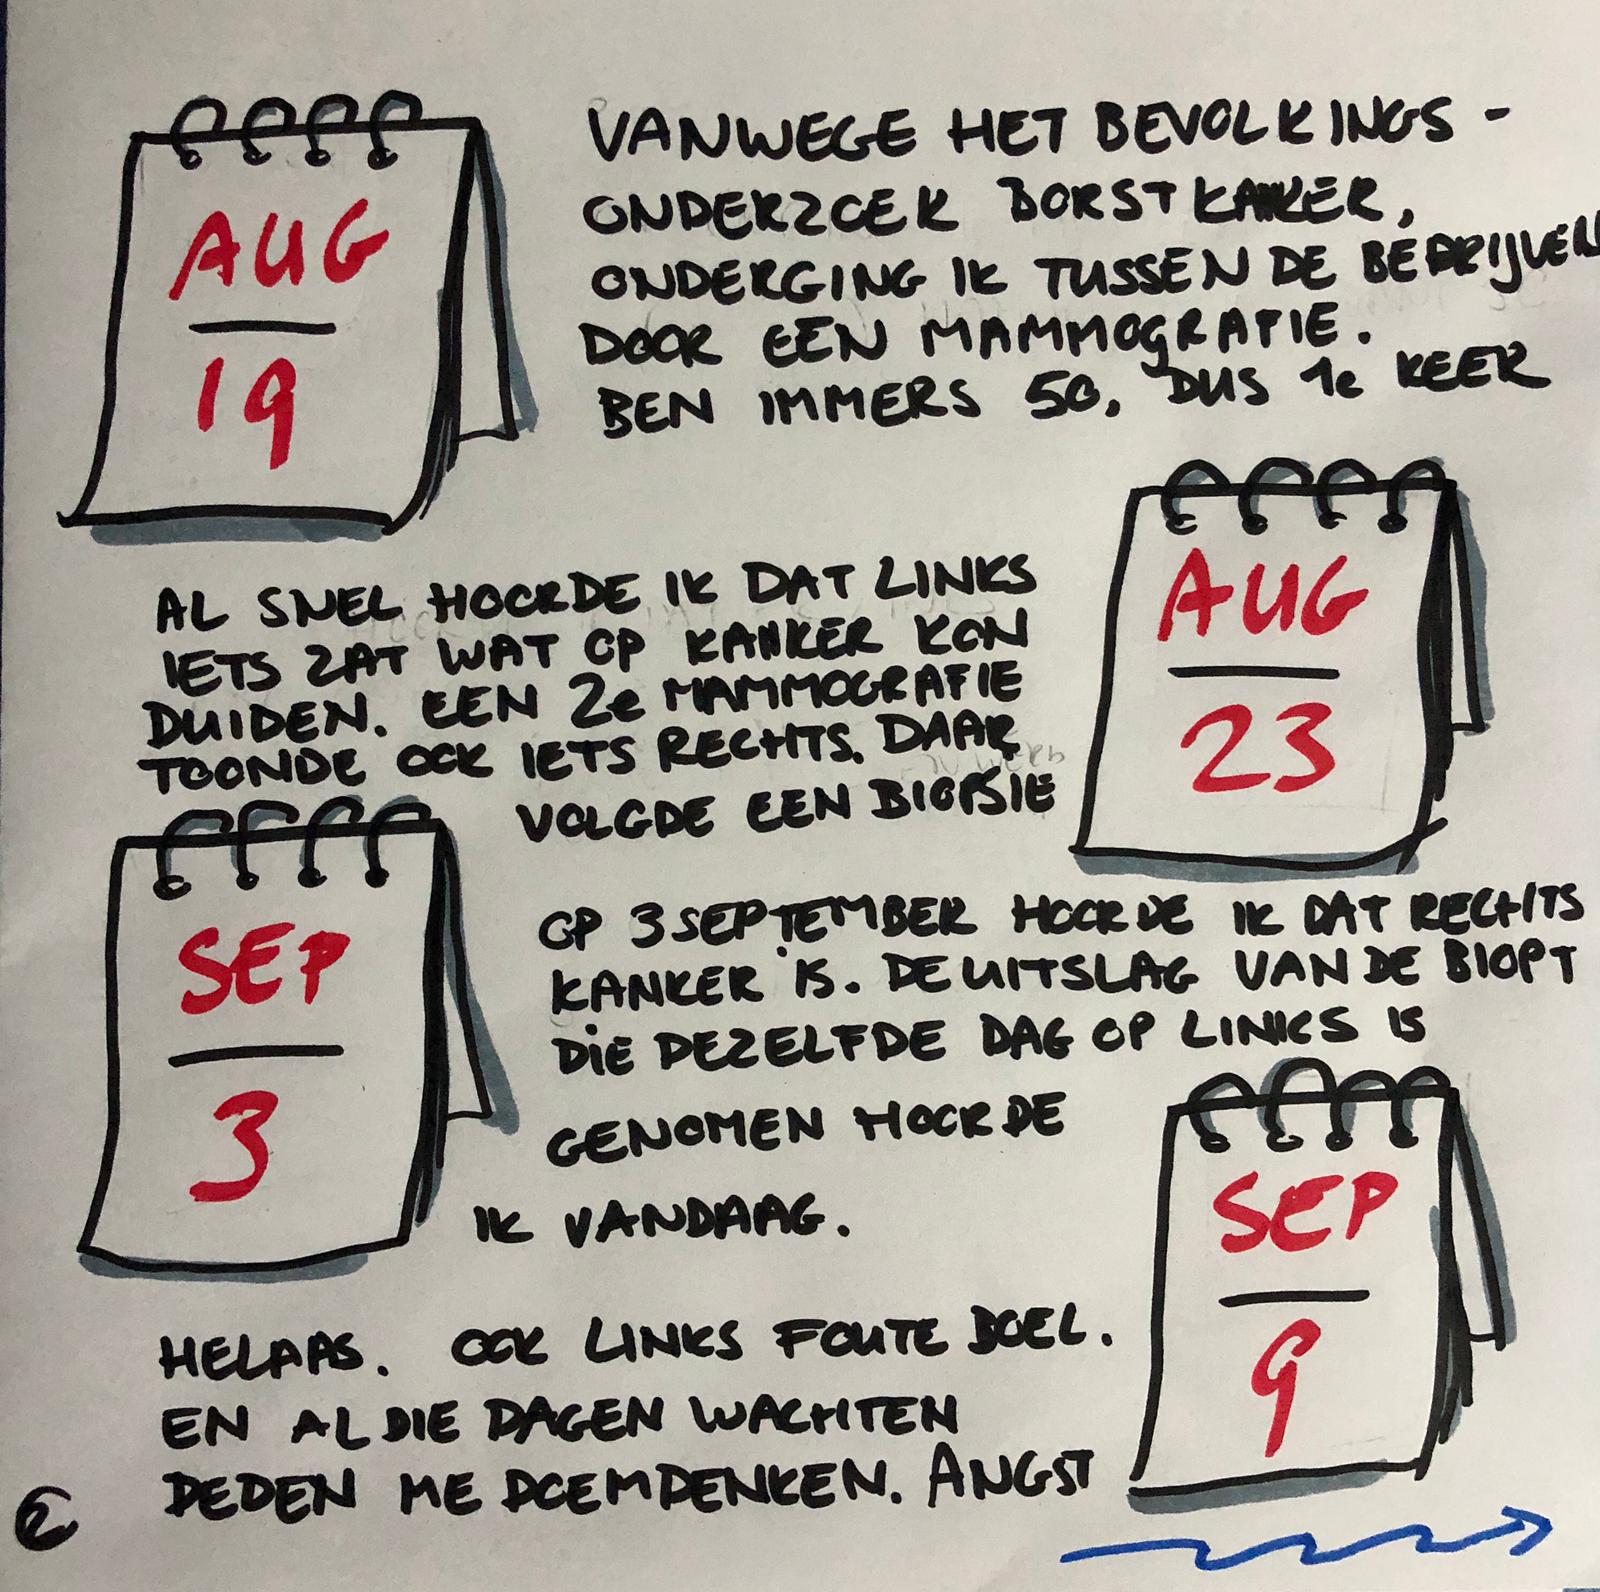 AUG
19
VANWEGE HET BEVOLKINGS-
ONDERZOEK BORSTKANKER,
ONDERGING IK TUSSEN DE BEDRIJVEN
DOOR EEN MAMMOGRAFIE.
BEN IMMERS 50, DUS 1e KEER
AUG
23
AL SNEL HOORDE IK DAT LINKS
IETS ZAT WAT OP KANKER KON
DUIDEN. EEN 2e MAMMOGRAFIE
TOONDE OOK IETS RECHTS. DAAR
VOLGDE EEN BIOPSIE
SEP
3
OP 3 SEPTEMBER HOORDE IK DAT RECHTS
KANKER IS. DE UITSLAG VAN DE BIOPT
DIE DEZELFDE DAG OP LINKS IS
GENOMEN HOORDE
IK VANDAAG.
SEP
9
HELAAS. OOK LINKS FOUTE BOEL.
EN AL DIE DAGEN WACHTEN
DEDEN ME DOEMDENKEN. ANGST